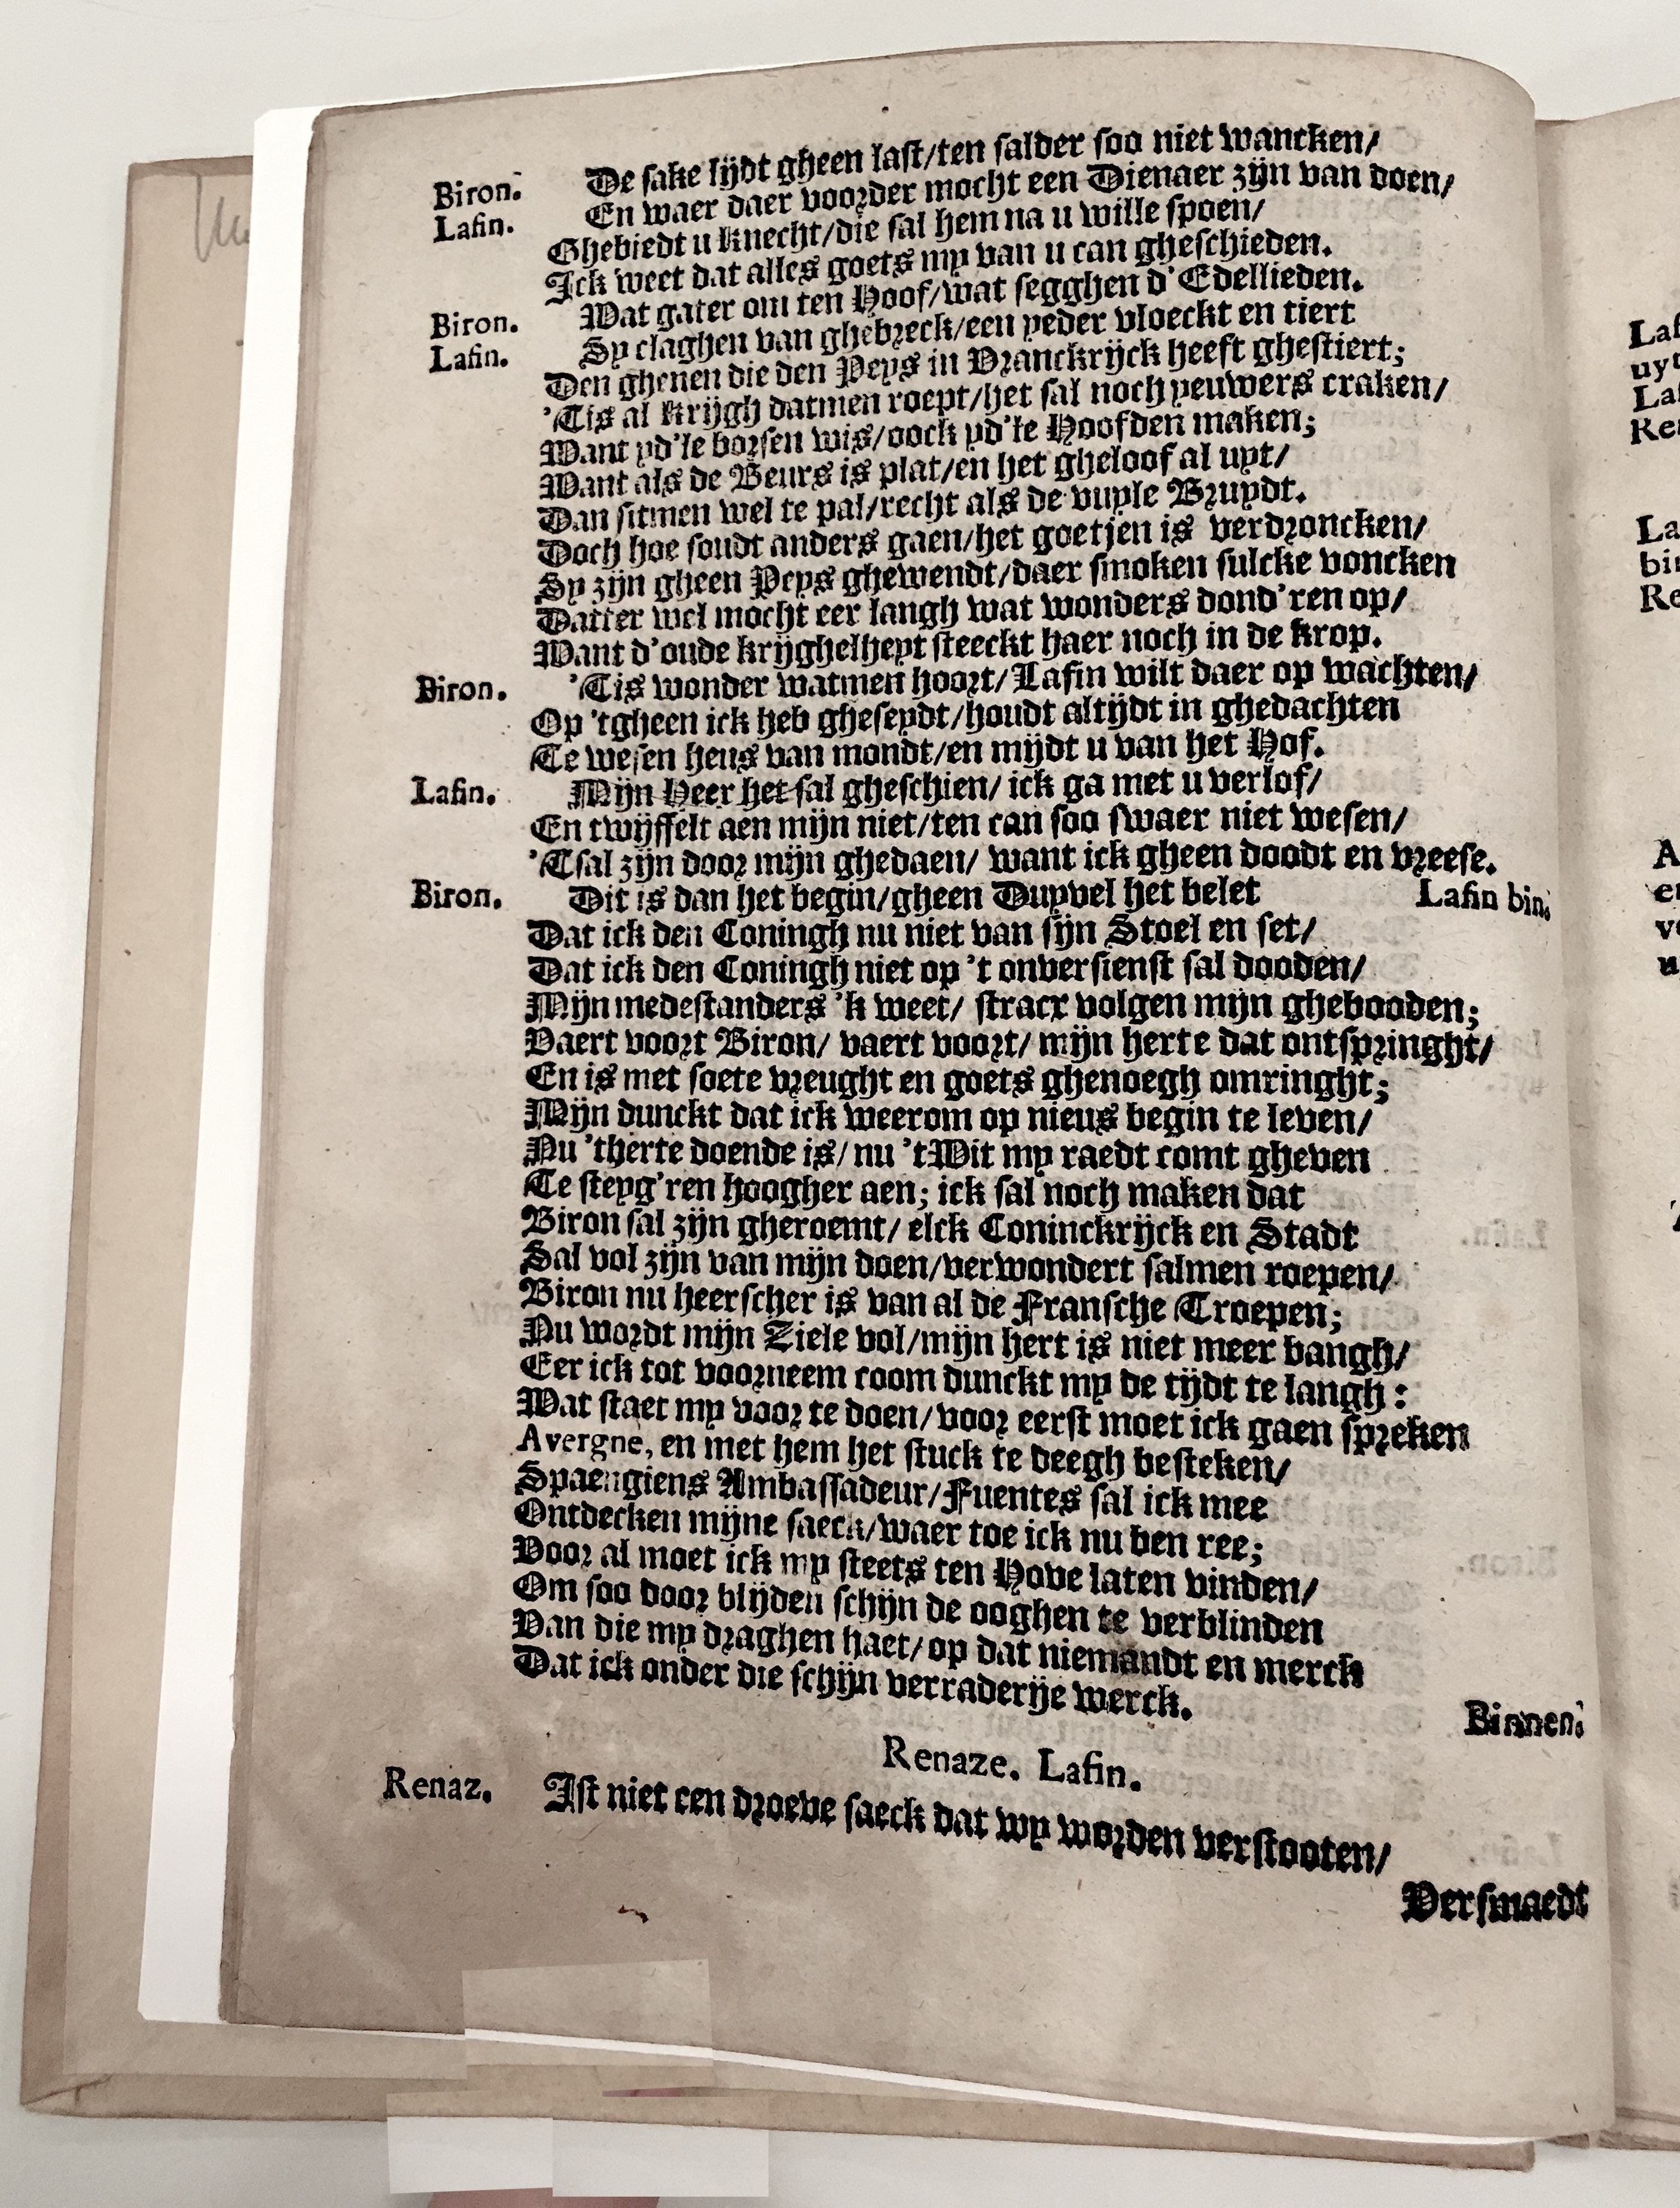 Biron. De sake lijdt gheen last/ten salder soo niet wancken/
Lafin. En waer daer voorder mocht een Dienaer zijn van doen/
Ghebiedt u knecht/die sal hem na u wille spoen/
Ick weet dat alles goets my van u can gheschieden.
Biron. Wat gater om ten Hoof/wat segghen d'Edellieden.
Lafin. Sy claghen van ghebreck/een yeder vloeckt en tiert
Den ghenen die den Peys in Vranckrijck heeft ghestiert;
'Tis al krijgh datmen roept/het sal noch yeuwers craken/
Want yd'le borsen wis/oock yd'le Hoofden maken;
Want als de Beurs is plat/en het gheloof al uyt/
Dan sitmen wel te pal/recht als de vuyle Bruydt.
Doch hoe soudt anders gaen/het goetjen is verdroncken/
Sy zijn gheen Peys ghewendt/daer smoken sulcke voncken
Datter wel mocht eer langh wat wonders dond'ren op/
Want d'oude krijghelheyt steeckt haer noch in de krop.
Biron. 'Tis wonder watmen hoort/Lafin wilt daer op wachten/
Op 'tgheen ick heb gheseydt/houdt altijdt in ghedachten
Te wesen heus van mondt/en mijdt u van het Hof.
Lafin. Mijn Heer het sal gheschien/ ick ga met u verlof/
En twijffelt aen mijn niet/ten can soo swaer niet wesen/
'Tsal zijn door mijn ghedaen/ want ick gheen doodt en vreese.
Biron. Dit is dan het begin/gheen Duyvel het belet Lafin bin.
Dat ick den Coningh nu niet van sijn Stoel en set/
Dat ick den Coningh niet op 't onversienst sal dooden/
Mijn medestanders 'k weet/ stracx volgen mijn ghebooden;
Vaert voort Biron/ vaert voort/ mijn herte dat ontspringht/
En is met soete vreught en goets ghenoegh omringht;
Mijn dunckt dat ick weerom op nieus begin te leven/
Nu 'therte doende is/ nu 'tWit my raedt comt gheven
Te steyg'ren hoogher aen; ick sal noch maken dat
Biron sal zijn gheroemt/ elck Coninckrijck en Stadt
Sal vol zijn van mijn doen/verwondert salmen roepen/
Biron nu heerscher is van al de Fransche Troepen;
Nu wordt mijn Ziele vol/mijn hert is niet meer bangh/
Eer ick tot voorneem coom dunckt my de tijdt te langh:
Wat staet my voor te doen/voor eerst moet ick gaen spreken
Avergne, en met hem het stuck te deegh besteken/
Spaengiens Ambassadeur/Fuentes sal ick mee
Ontdecken mijne saeck/waer toe ick nu ben ree;
Voor al moet ick my steets ten Hove laten vinden/
Om soo door blijden schijn de ooghen te verblinden
Van die my draghen haet/op dat niemandt en merck
Dat ick onder die schijn verraderije werck.
Binnen.
Renaze. Lafin.
Renaz. Ist niet een droeve saeck dat wy worden verstooten/
Versmaedt
Laf
uyt
La
Re
La
bi
Re
A
e
v
u